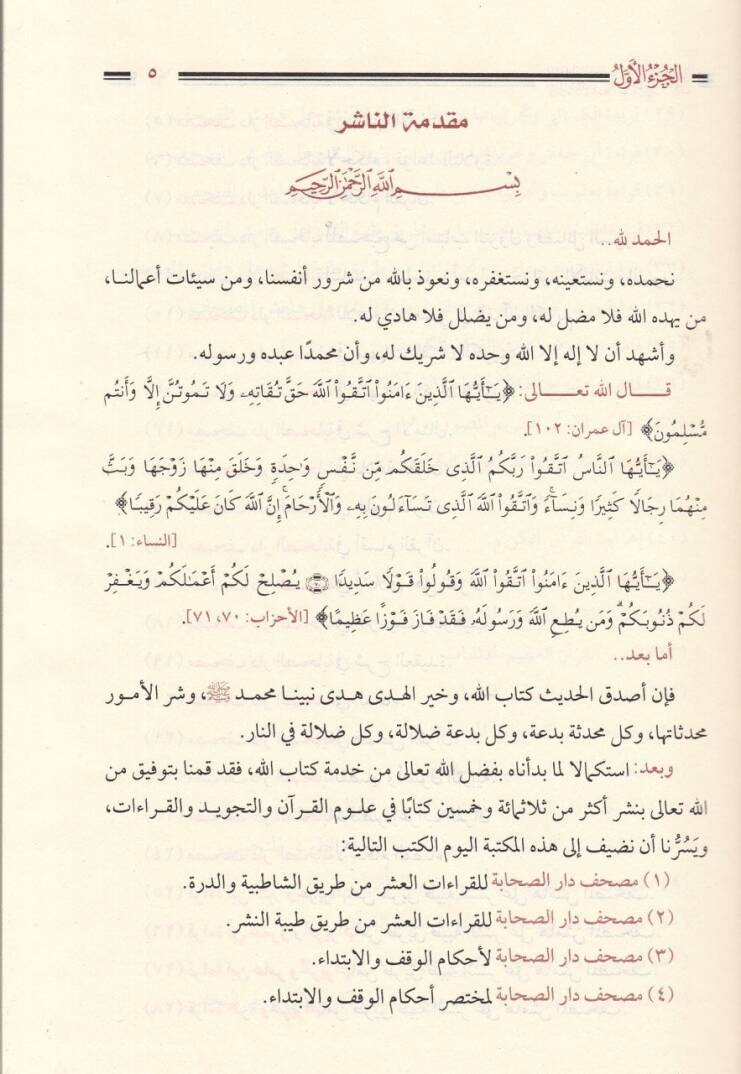 الجزء الأول ٥
مقدمة الناشر
بسم الله الرحمن الرحيم
الحمد لله..
نحمده، ونستعينه، ونستغفره، ونعوذ بالله من شرور أنفسنا، ومن سيئات أعمالنا،
من يهده الله فلا مضل له، ومن يضلل فلا هادي له.
وأشهد أن لا إله إلا الله وحده لا شريك له، وأن محمدًا عبده ورسوله.
قال الله تعالى: ﴿يَـٰٓأَيُّهَا ٱلَّذِينَ ءَامَنُوا۟ ٱتَّقُوا۟ ٱللَّهَ حَقَّ تُقَاتِهِۦ وَلَا تَمُوتُنَّ إِلَّا وَأَنتُم
مُّسْلِمُونَ﴾ [آل عمران: ١٠٢].
﴿يَـٰٓأَيُّهَا ٱلنَّاسُ ٱتَّقُوا۟ رَبَّكُمُ ٱلَّذِى خَلَقَكُم مِّن نَّفْسٍ وَٰحِدَةٍ وَخَلَقَ مِنْهَا زَوْجَهَا وَبَثَّ
مِنْهُمَا رِجَالًا كَثِيرًا وَنِسَآءً ۚ وَٱتَّقُوا۟ ٱللَّهَ ٱلَّذِى تَسَآءَلُونَ بِهِۦ وَٱلْأَرْحَامَ ۚ إِنَّ ٱللَّهَ كَانَ عَلَيْكُمْ رَقِيبًا﴾
[النساء: ١].
﴿يَـٰٓأَيُّهَا ٱلَّذِينَ ءَامَنُوا۟ ٱتَّقُوا۟ ٱللَّهَ وَقُولُوا۟ قَوْلًا سَدِيدًا ۝٧٠ يُصْلِحْ لَكُمْ أَعْمَـٰلَكُمْ وَيَغْفِرْ
لَكُمْ ذُنُوبَكُمْ ۗ وَمَن يُطِعِ ٱللَّهَ وَرَسُولَهُۥ فَقَدْ فَازَ فَوْزًا عَظِيمًا﴾ [الأحزاب: ٧٠، ٧١].
أما بعد..
فإن أصدق الحديث كتاب الله، وخير الهدى هدى نبينا محمد ﷺ، وشر الأمور
محدثاتها، وكل محدثة بدعة، وكل بدعة ضلالة، وكل ضلالة في النار.
وبعد: استكمالا لما بدأناه بفضل الله تعالى من خدمة كتاب الله، فقد قمنا بتوفيق من
الله تعالى بنشر أكثر من ثلاثمائة وخمسين كتابًا في علوم القرآن والتجويد والقراءات،
ويَسُرُّنا أن نضيف إلى هذه المكتبة اليوم الكتب التالية:
(١) مصحف دار الصحابة للقراءات العشر من طريق الشاطبية والدرة.
(٢) مصحف دار الصحابة للقراءات العشر من طريق طيبة النشر.
(٣) مصحف دار الصحابة لأحكام الوقف والابتداء.
(٤) مصحف دار الصحابة لمختصر أحكام الوقف والابتداء.